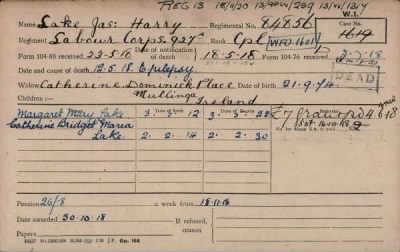 REG 13 15/4/20 13/APW/239 13/W/1317
W.1.
Name Lake Jas: Harry Regimental No. 84856 Case No.
Regiment Labour Corps. 927 Cpl WFO 1601 1619
Form 104-88 received 23.5.18 Date of notification of death 18.5.18 Form 104-76 received 2-7-18
Date and cause of death 12.5.18 Epilepsy DEAD
Widow Catherine Dominick Place Date of birth 21.9.74
Children:— Mullingar Ireland
Margaret Mary Lake 3. 3. 12 3. 3. 28
Catherine Bridget Maria
Lake. 2. 2. 14 2. 2. 30
Pension 26/8 a week from 18.11.18
Date awarded 30.10.18 If refused, reason
Papers